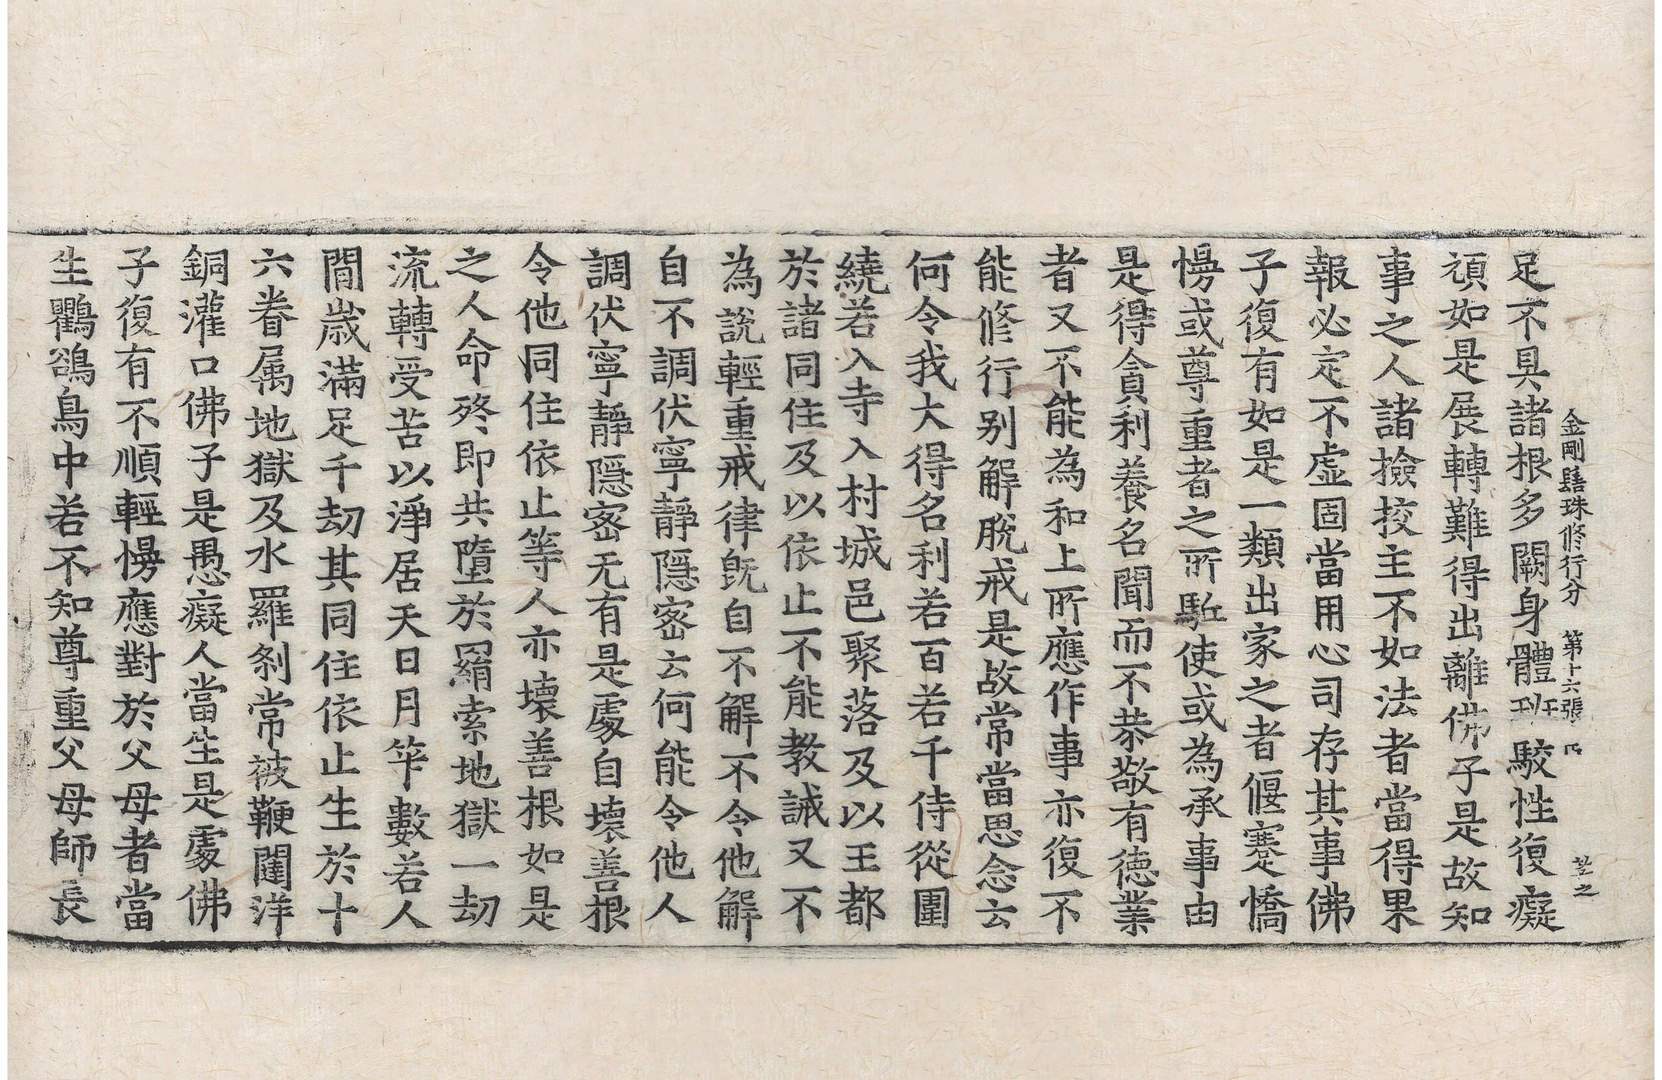 金剛髻珠修行分 第十六張
足不具諸根多闕身體斑駮性復癡
頑如是展轉難得出離佛子是故知
事之人諸撿挍主不如法者當得果
報必定不虛固當用心司存其事佛
子復有如是一類出家之者偃蹇憍
慢或尊重者之所駈使或為承事由
是得貪利養名聞而不恭敬有德業
者又不能為和上所應作事亦復不
能修行别解脫戒是故常當思念云
何令我大得名利若百若千侍從圍
繞若入寺入村城邑聚落及以王都
於諸同住及以依止不能教誡又不
為說輕重戒律旣自不解不令他解
自不調伏寧靜隱密云何能令他人
調伏寧靜隱密无有是處自壞善根
令他同住依止等人亦壞善根如是
之人命終即共墮於羂索地獄一劫
流轉受苦以淨居天日月筭數若人
間歲滿足千劫其同住依止生於十
六眷属地獄及水羅剎常被鞭闥洋
銅灌口佛子是愚癡人當生是處佛
子復有不順輕慢應對於父母者當
生鸜鵒鳥中若不知尊重父母師長